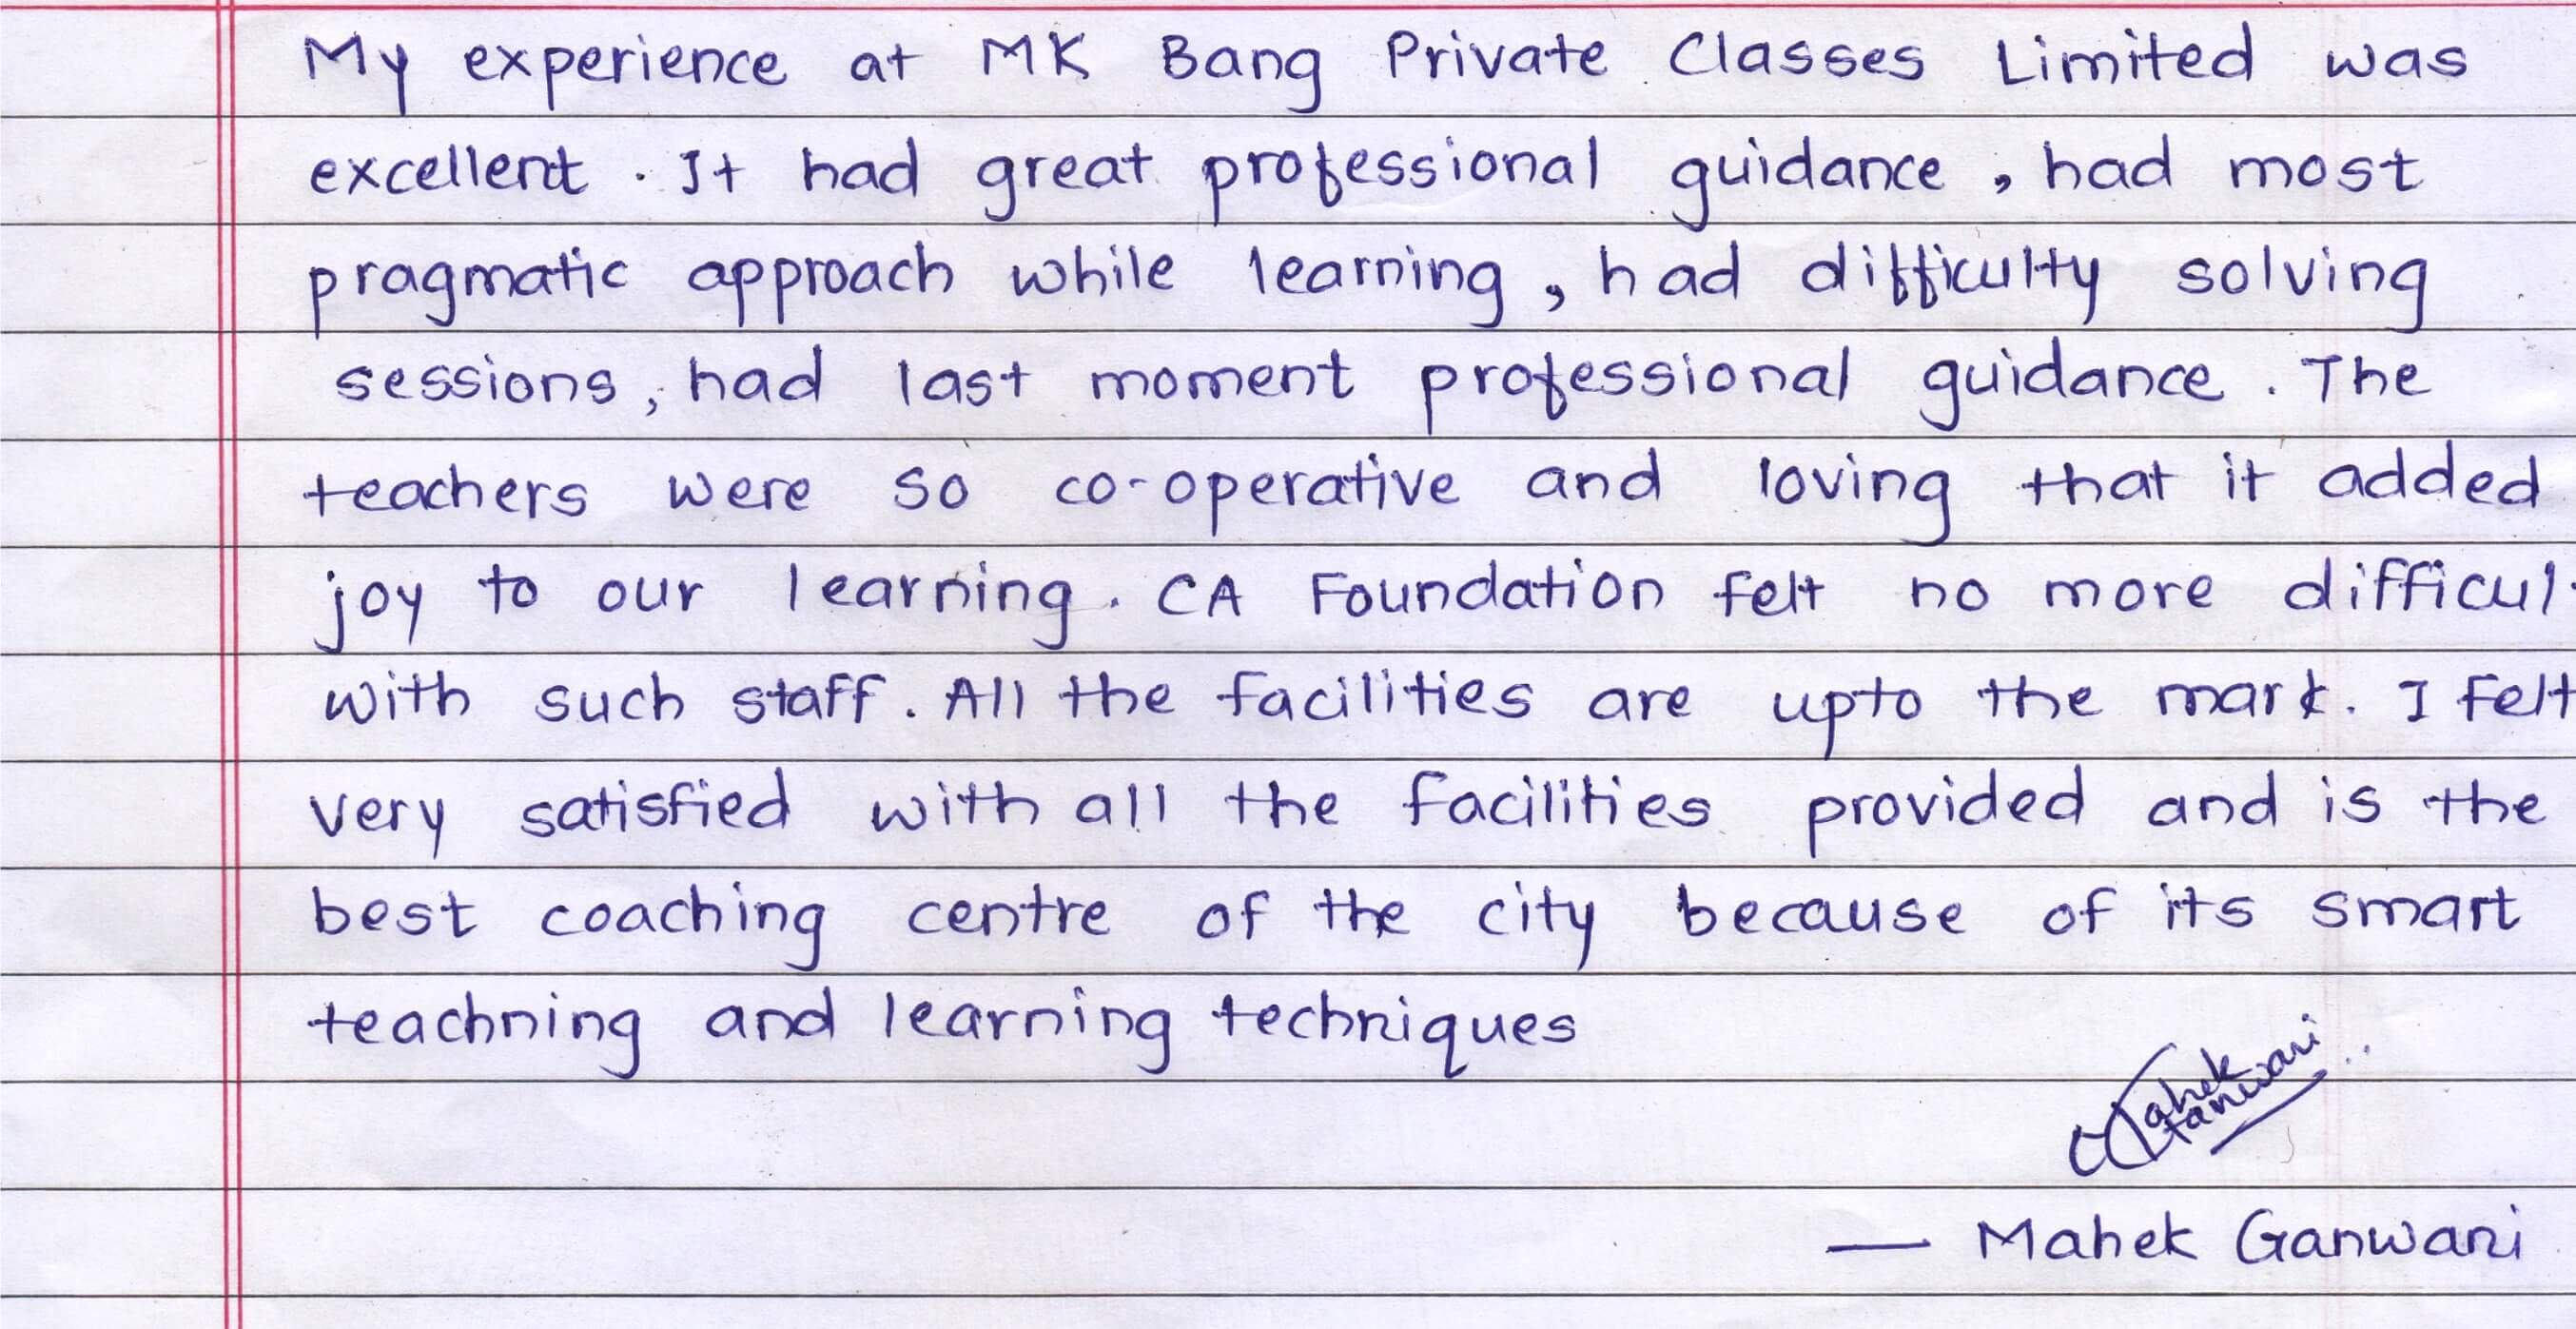 My experience at MK Bang Private Classes Limited was
excellent. It had great professional guidance, had most
pragmatic approach while learning, had difficulty solving
sessions, had last moment professional guidance. The
teachers were so co-operative and loving that it added
joy to our learning. CA Foundation felt no more difficult
with such staff. All the facilities are upto the mark. I felt
very satisfied with all the facilities provided and is the
best coaching centre of the city because of its smart
teachning and learning techniques
Mahek
Ganwani
— Mahek Ganwani